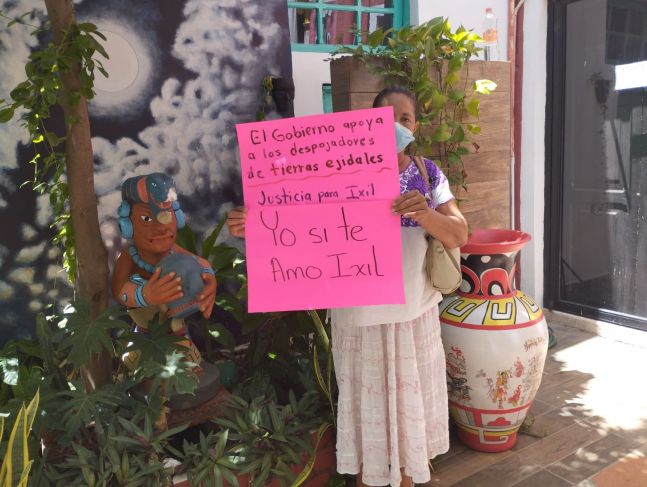 El Gobierno apoya
a los despojadores
de tierras ejidales
Justicia para Ixil
Yo si te
Amo Ixil